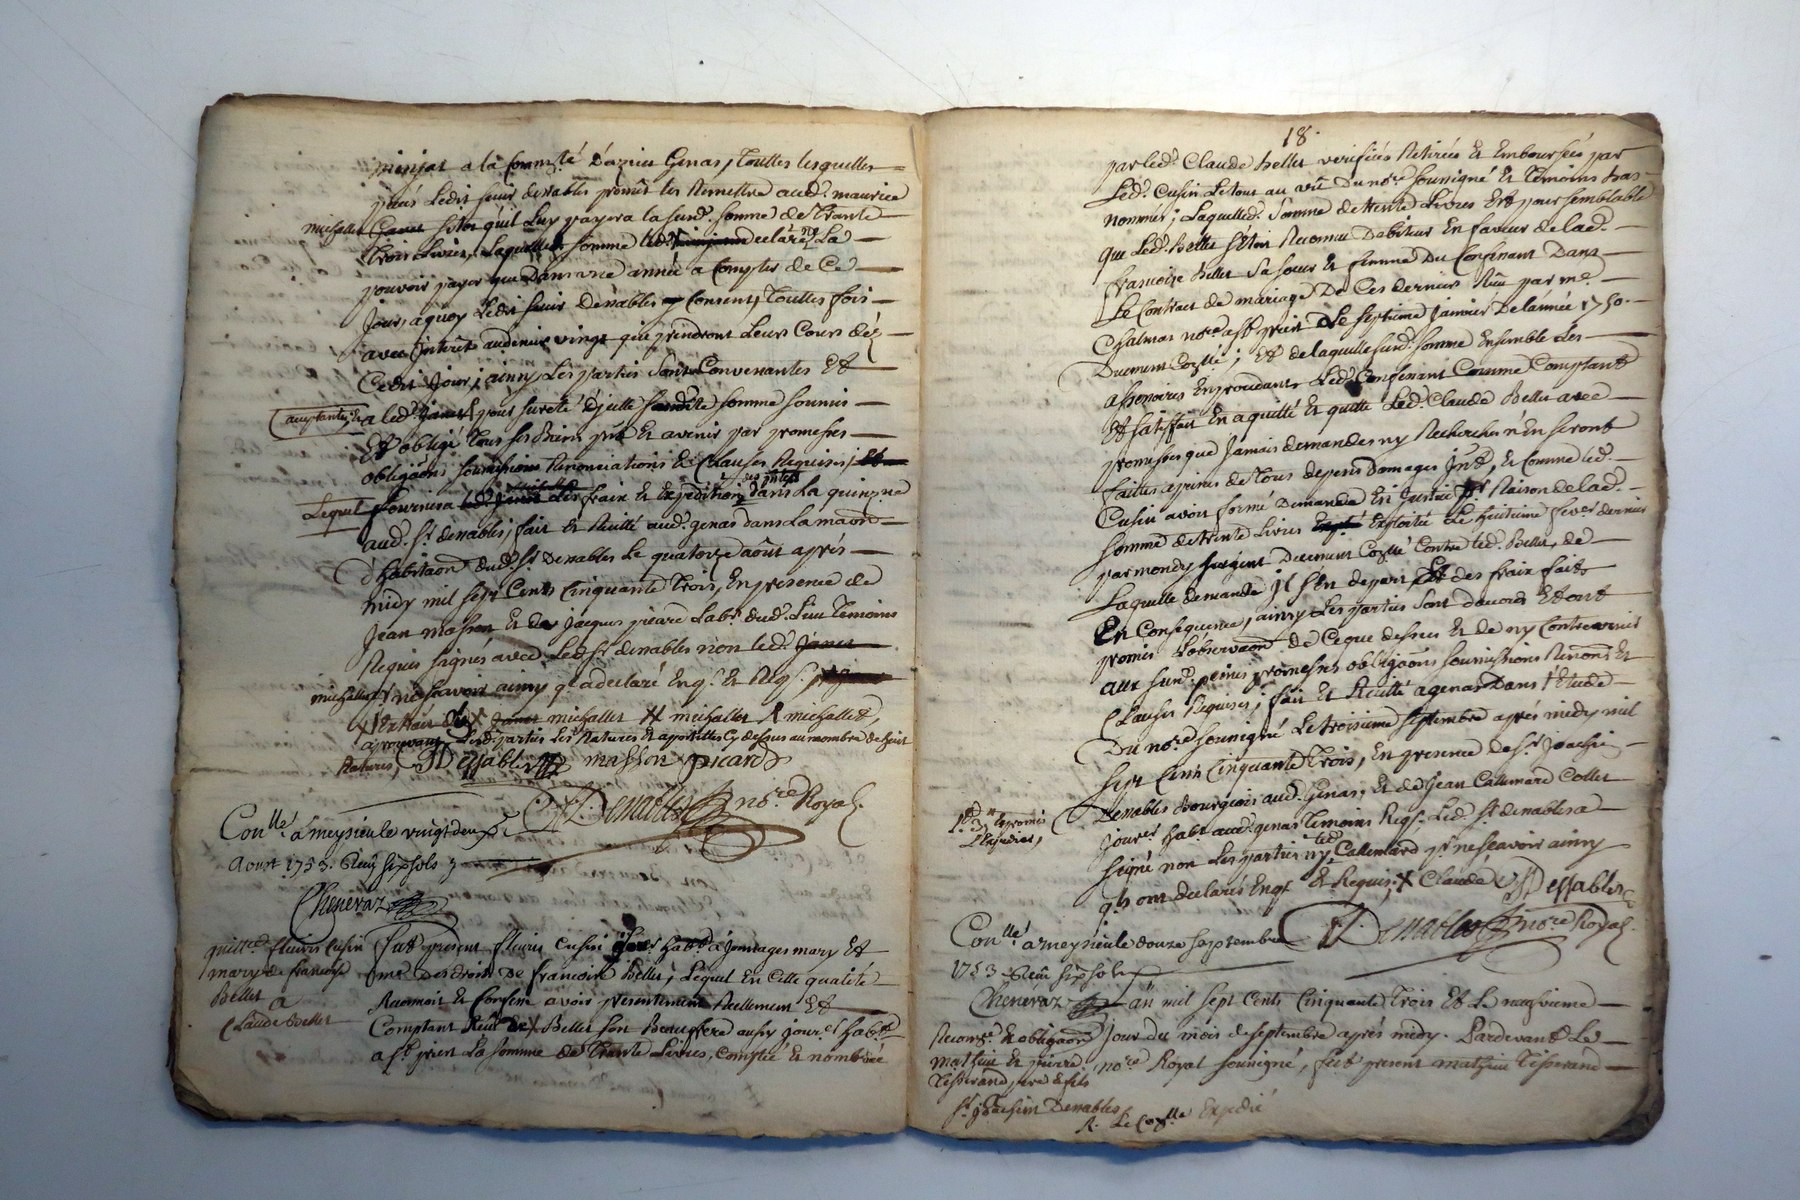 minjat a la Comm.té d'azieu Genas, Touttes lesquelles
piéçes Ledit sieur desnables promet les Remettre aud.t maurice
michallet sitot qu'il Luy payera la susd.e somme de Trante
Trois Livres, Laquelle somme declaré ne La
pouvoir payer que Dans une année a Compter de Ce
Jour, a quoy Ledit sieur Denables Consent, Touttes fois
avec Interets au denier vingt qui prendront Leurs Cours dez
Cedit Jour, ainsy Les parties sont Convenantes Et
acceptantes, & a led. pour sureté d'jcelle somme soumis
Et obligé Tous ses Biens pnts Et avenir par promesses
obligaons soumissions Renonciations & Clauses Requises,
Lequel fournira frais Et Expedition des ptes dans La quinzne
aud. Sr. denables, fait Et Recitté aud. genas dans La maon
d'habitaon dud. Sr. Denables Le quatorze août aprés
midy mil sept Cents Cinquante Trois, En presence de
Jean masson Et de Jacques picard Lab.r dud. Lieu Temoins
Requis signés avec Led. Sr. denables non led.
michallet pr ne scavoir ainsy q.l a declaré Enq.s Et Req.s
michallet X michallet X michallet,
aprouvant Lesd. parties Les Ratures & apostilles Cy dessus au nombre de huit
Ratures, Dessables masson picard
Denables no.re Royal
Con.llé a meysieule vingt deux
Aoust 1753. Reçû six sols
Cheneraz
quittce fleurie Cusin
mary de francoise
Bellet
a
Claude Bellet
fut present fleurie Cusin hab.t a Jonnages mary Et
me des droits De francoise Bellet, Lequel En Cette qualité
Reconnoit Et Confesse avoir presentement Reellement Et
Comptant Reçû de Bellet son Beaufrere aussy jour.r hab.t
a st. prien La somme de Trante Livres, Comptée Et nombrée
18.
par led. Claude Bellet verifiée Retirée Et Emboursée par
Led. Cusin Le tout au vû Du no.re soussigné Et Temoins bas
nommés, Laquelle d. Somme de trente Livres Est pour semblable
que Led. Bellet s'étoit Reconnu Debiteur En faveur de lad.
francoise Bellet Sa soeur Et femme Du Confessant Dans
Le Contract de mariage De Ces derniers Reçû par me.
Chalmas no.re a st. priest Le septieme Janvier De l'année 1750.
Duement Co.llé; Et de laquelle susd. somme Ensemble Les
assessoires En procedants Led. Confessant Comme Comptant
Et satisfait En a quitté Et quitte Led. Claude Bellet avec
promesses que Jamais demandes ny Recherches n'En seront
faittes a peines de Tous depens Damages Jnt.s, Et Comme led.
Cusin avoit formé Demande En Justice pr Raison de lad.
somme de trente Livres Exploité Le huitieme fev.r dernier
par mondy sergent Duement Co.llé Contre led. Bellet, de
Laquelle demande Jl s'En depart Et des fraix faits
En Consequence, ainsy Les parties sont d'acord Et ont
promis L'observaon de Ce que dessus Et de ny Contrevenir
aux susd. peines, promesses obligaons soumissions Renons Et
Clauses Requises, fait Et Recitté a genas Dans l'Etude
Du no.re soussigné Le troisieme septembre aprés midy mil
sept Cents Cinquante Trois, En presence de Sr. Joachin
Denables Bourgeois aud. Genas, Et de Jean Callemard Collet
Jour.r hab.t aud. genas Temoins Req.s Led. Sr. denables a
signé non Les parties ny led. Callemard pr ne scavoir ainsy
q.ls ont declarés Enq.s Et Requis, X Claude Dessables
Denables no.re Royal
Con.llé a meysieule douze septembre
1753 Reçû six sols
Cheneraz
L'an mil sept Cents Cinquante Trois Et Le neufvieme
Reconce & obligaon
mathieu Et pierre
Tisserand, pere & fils
Sr. Joachin Denables
Jour du mois de septembre aprés midy. Pardevant Le
no.re Royal soussigné, fut present mathieu Tisserand
R. Le Co.lle Expedié